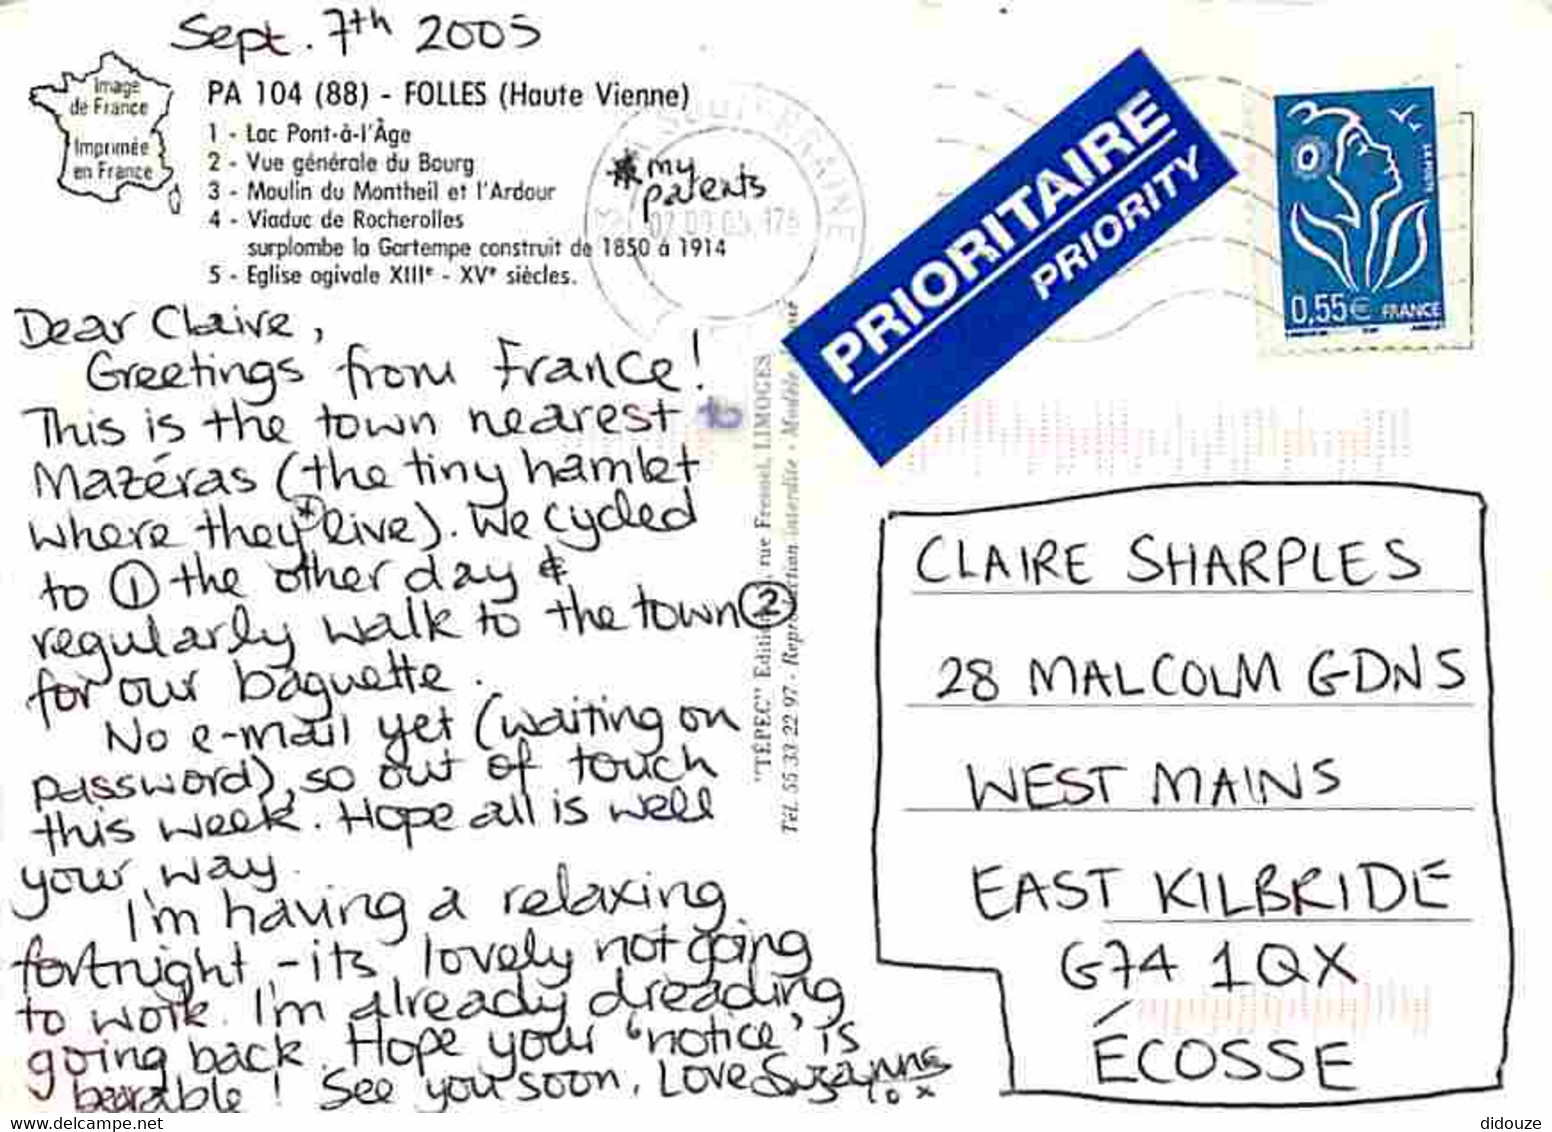 Sept. 7th 2005
Image
de France
Imprimée
en France
PA 104 (88) - FOLLES (Haute Vienne)
1 - Lac Pont-à-l'Âge
2 - Vue générale du Bourg
3 - Moulin du Montheil et l'Ardour
4 - Viaduc de Rocherolles
surplombe la Gartempe construit de 1850 à 1914
5 - Eglise ogivale XIIIe - XVe siècles.
* my
parents
Dear Claire,
Greetings from France!
This is the town nearest
Mazéras (the tiny hamlet
where they* live). We cycled
to ① the other day &
regularly walk to the town ②
for our baguette.
No e-mail yet (waiting on
password), so out of touch
this week. Hope all is well
your way.
I'm having a relaxing
fortnight - its lovely not going
to work. I'm already dreading
going back. Hope your 'notice' is
bearable! See you soon. Love Suzanne
xox
"TÉPEC" Edition, rue Fresnel, LIMOGES
Tél. 55 33 22 97 - Reproduction interdite - Modèle
07 09 05
PRIORITAIRE
PRIORITY
LA POSTE
0,55€ FRANCE
CLAIRE SHARPLES
28 MALCOLM GDNS
WEST MAINS
EAST KILBRIDE
G74 1QX
ÉCOSSE
didouze